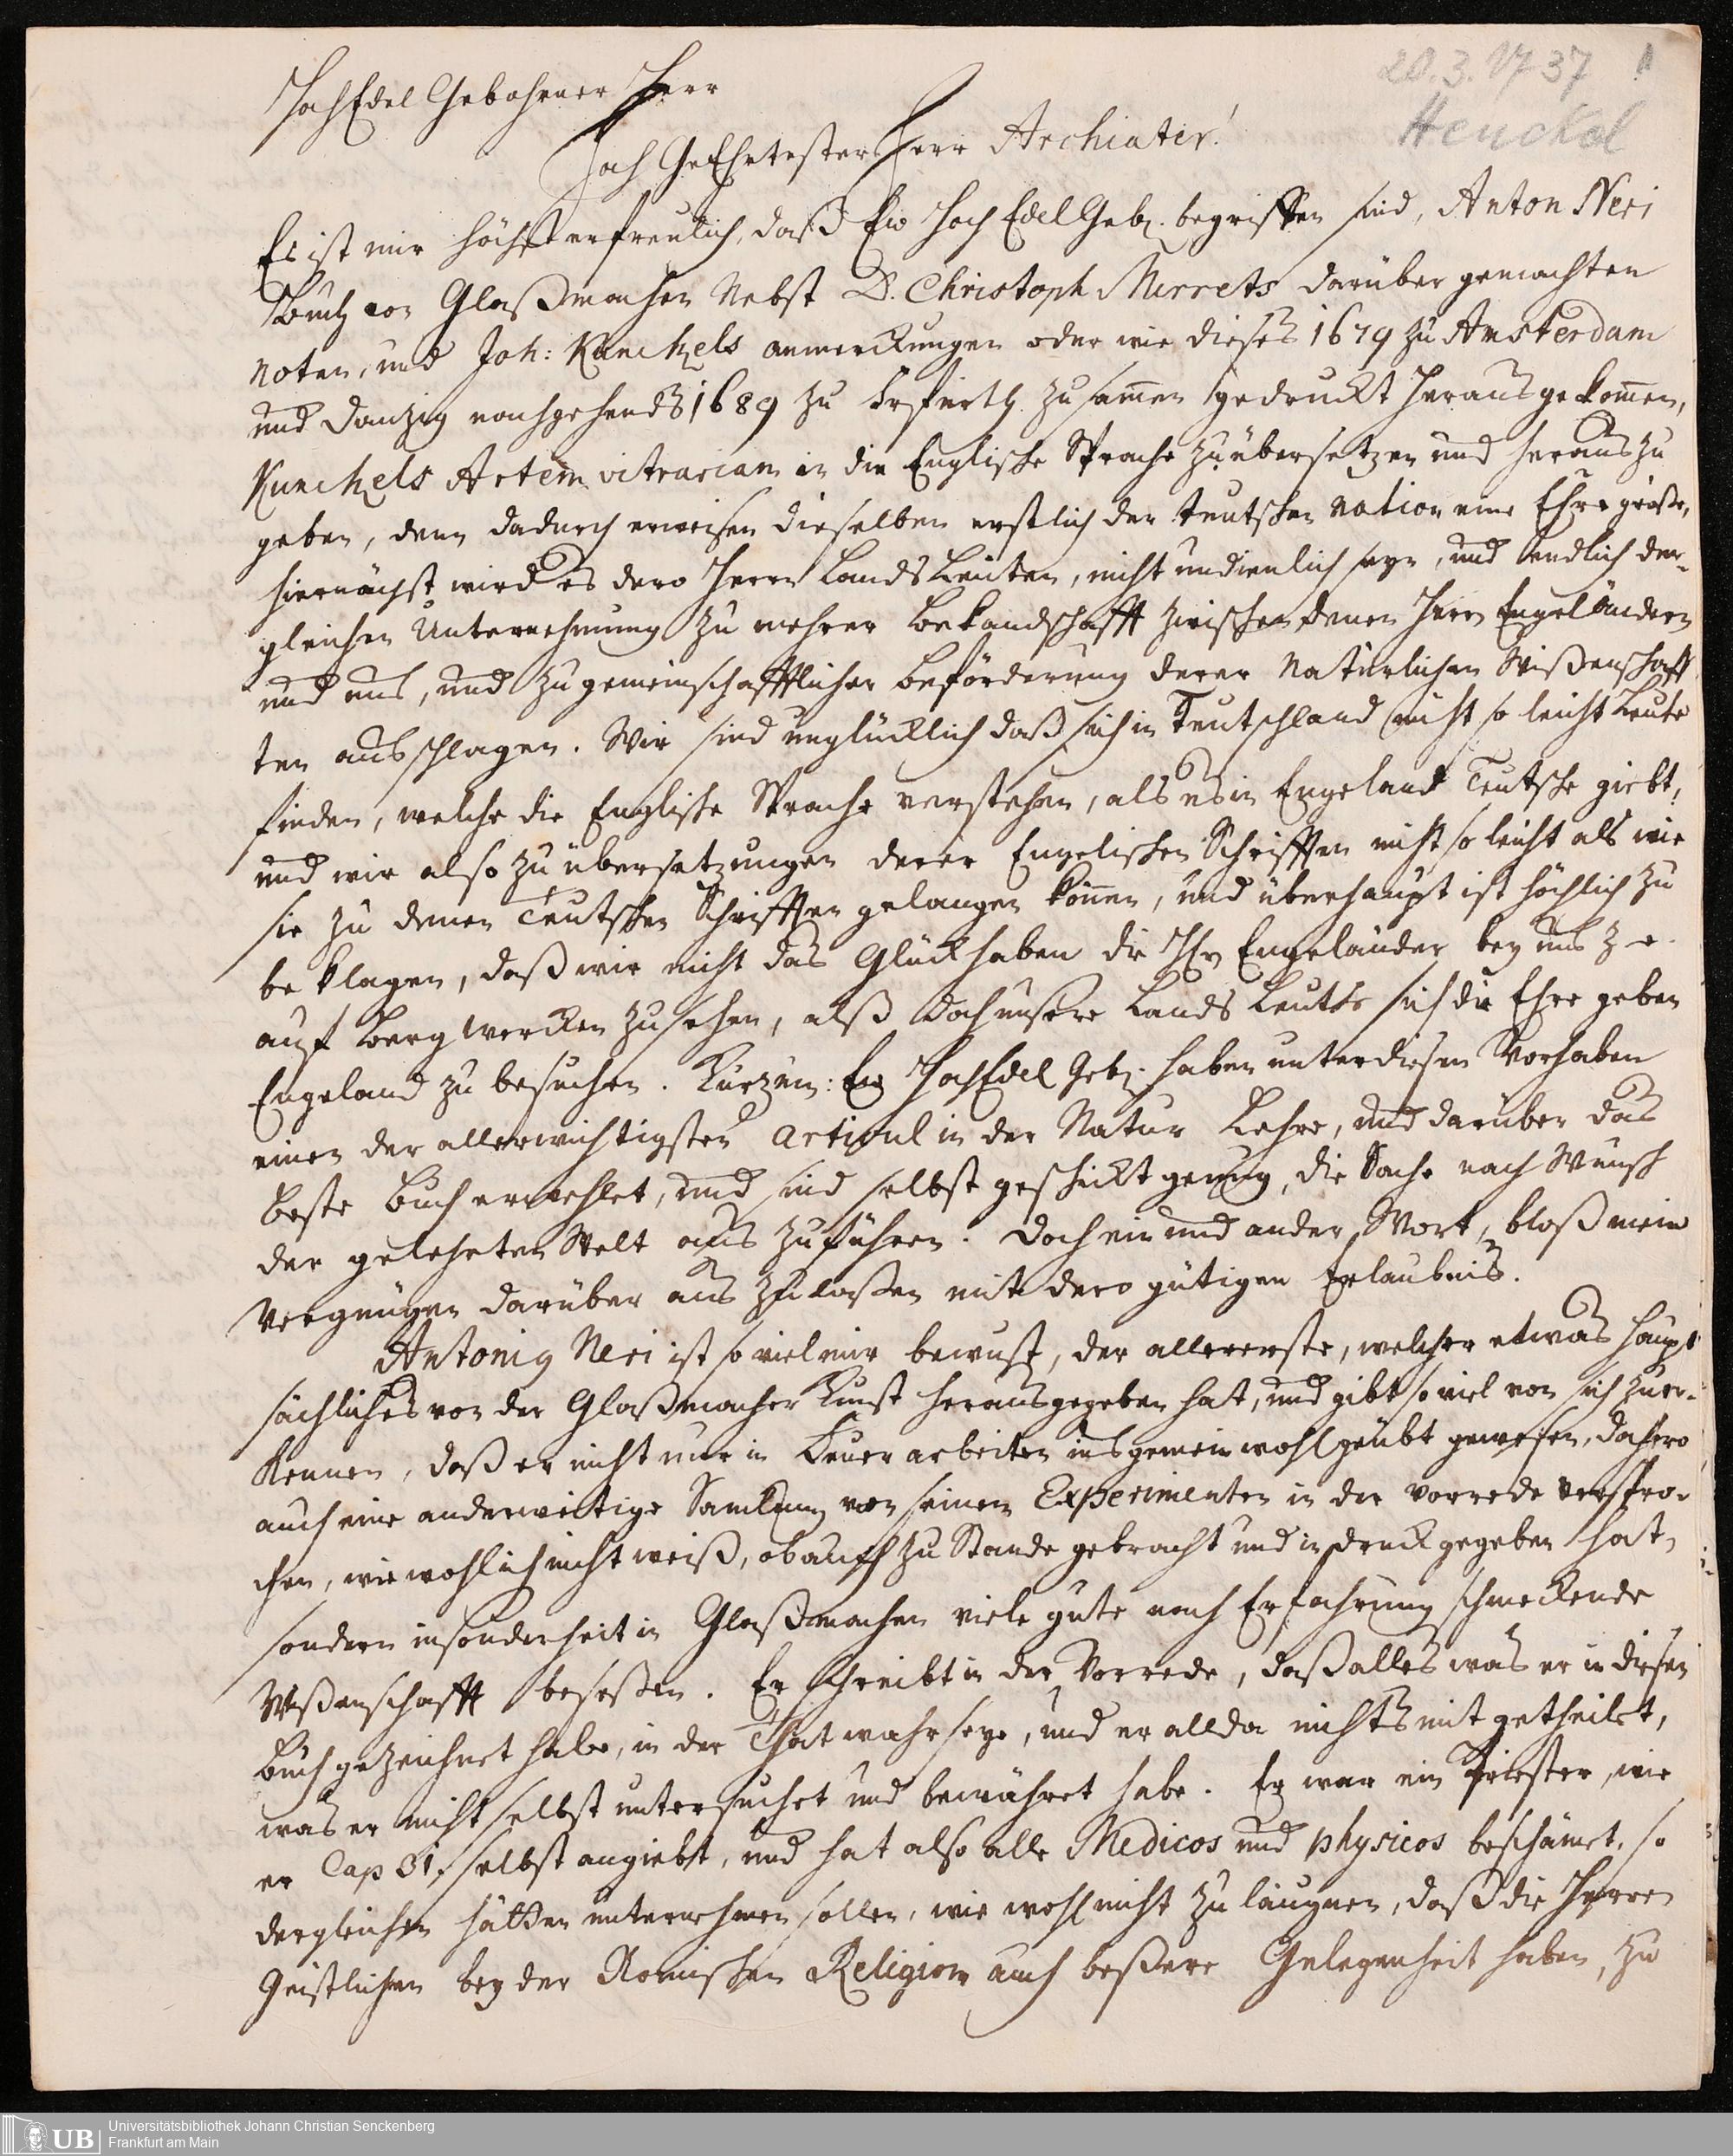 20.3.1737
Henckel
HochEdel Gebohrner Herr
Hoch GeEhrtester Herr Archiater!
Es ist mir höchst erfreulich, daß Ew HochEdelGeb. begriffen sind, Anton Neri
Buch von Glaßmachen Nebst D. Christoph Merrets darüber gemachten
Noten, und Joh: Kunckels anmerckungen oder wie dieses 1679 zu Amsterdam
und Danzig nachgehends 1689 zu Erfurth zusam̅en gedruckt herausgekom̅en,
Kunckels Artem vitrariam in die Englische Sprache zu übersetzen und heraus zu
geben, denn dadurch erweisen dieselben erstlich der teutschen Nation eine Ehre große,
hiernächst wird es dero Herrn LandsLeuten, nicht undienlich seyn, und endlich der-
gleichen Unternehmung zu mehrer Bekandschafft zwischen denen Herrn Engeländern
und uns, und zu gemeinschafftlicher Beförderung derer Natürlichen Wißenschaff
ten ausschlagen. Wir sind unglücklich daß sich in Teutschland nicht so leicht Leute
finden, welche die Englische Sprache verstehen, als es in Engeland Teutsche giebt,
und wir also zu übersetzungen derer Engelischen Schrifften nicht so leicht als wie
sie zu denen Teutschen Schrifften gelangen kön̅en, und überhaupt ist höchlich zu
beklagen, daß wir nicht das Glück haben die Hh Engeländer bey uns z e.
auf Bergwercken zu sehen, alß doch unsere Lands Leute sich die Ehre geben
Engeland zu besuchen. Kurzum: Ew HochEdel Geb. haben unter diesem Vorhaben
einen der allerwichtigsten Articul in der Natur Lehre, und darüber das
beste Buch erwehlet, und sind selbst geschickt genug, die Sache nach Wunsch
der gelehrten Welt auszuführen. Doch ein und ander Wort, bloß mein
Vergnügen darüber aus zu laßen mit dero gütigen Erlaubnis.
Antonig Neri ist so viel mir bewust, der allererste, welcher etwas haupt
sächliches von der Glaßmacher Kunst herausgegeben hat, und gibt so viel von sich zu er-
kennen, daß er nicht nur in Feuer arbeiten insgemein wohl geübt gewesen, dahero
auch eine anderweitige Samlung von seinen Experimenten in der Vorrede verspro-
chen, wiewohl ich nicht weiß, ob auch zu Stande gebracht und in Druck gegeben hat,
sondern insonderheit in Glaßmachen viele gute nach Erfahrung schmeckende
Wißenschafft beseßen. Er schreibt in der Vorrede, daß alles was er in diesen
Buch gezeichnet habe, in der That wahr seye, und er allda nichts mit getheilet,
was er nicht selbst untersuchet und bewähret habe. Er war ein Priester, wie
er Cap 31, selbst angiebt, und hat also alle Medicos und physicos beschämet, so
dergleichen hätten unternehmen sollen, wie wohl nicht zu läugnen, daß die Herren
Geistlichen bey der Römischen Religion auch beßere Gelegenheit haben, zu
UB
Universitätsbibliothek Johann Christian Senckenberg
Frankfurt am Main